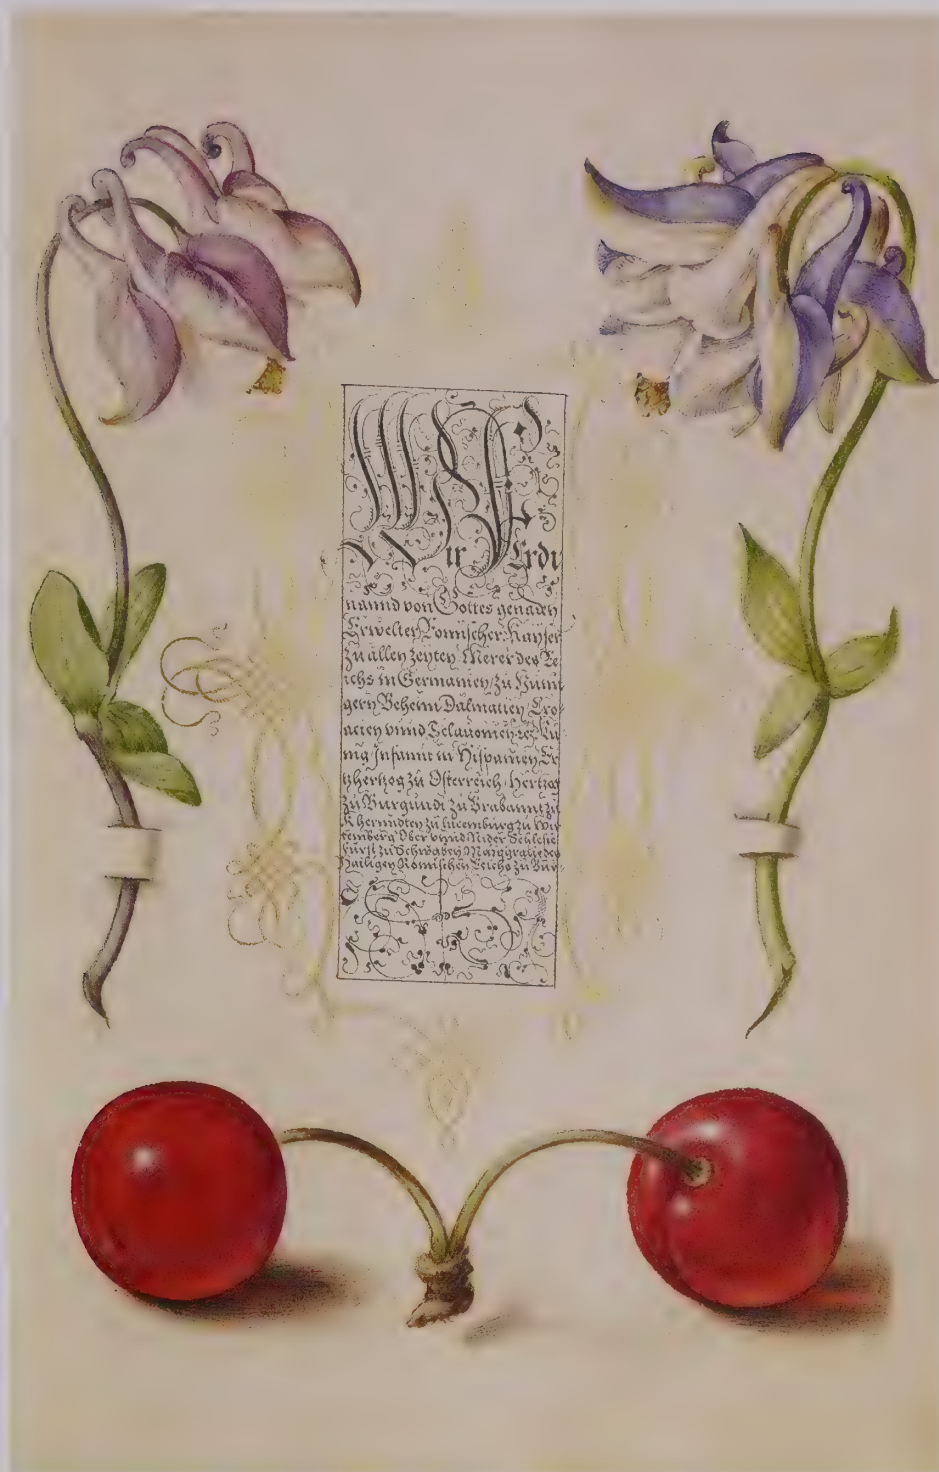 Wir Ferdi
nannd von Gottes genaden
Erwelter Romischer Kayser
zu allen zeyten Merer des Re
ichs in Germanien, zu Hunn
gern Beheim Dalmatien, Cro
acien vnnd Sclauonien, rc. Kü
nig Infannt in Hispanien, Er
tzhertzog zu Osterreich, Hertzog
zu Burgundi zu Brabannt zu
Kherndten zu lucemburg zu Wir
temberg Ober vnnd Nider Schlesie
Fürst zu Schwaben Marggraue des
Hailigen Römischen Reichs zu Bur